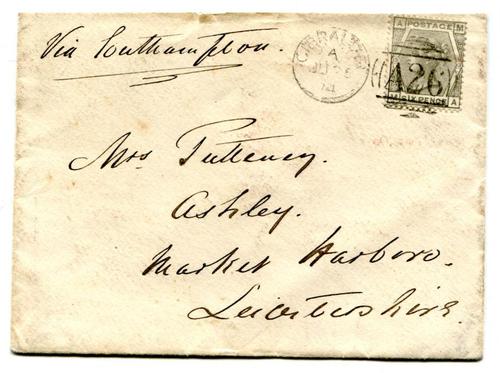 Via Southampton.
GIBRALTAR
A
JU 25
74
A POSTAGE M
A26
M SIX PENCE A
Mrs Pulteney.
Ashley.
Market Harboro.
Leicestershire.